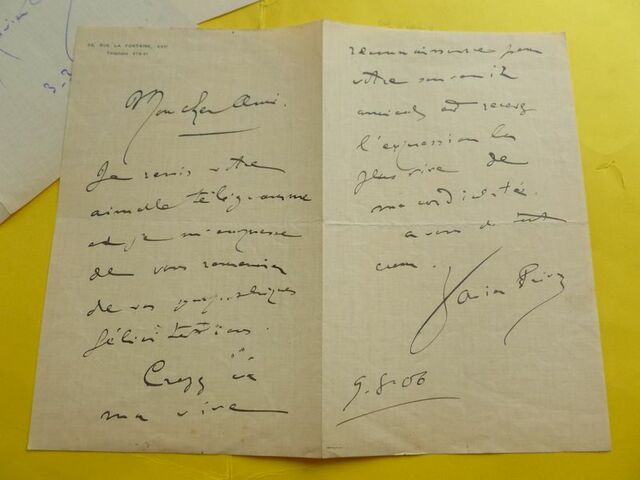 RUE LA FONTAINE, XVIe
Téléphone
Mon cher Ami.
Je reçois votre
aimable télégramme
et je m'empresse
de vous remercier
de vos sympathiques
félicitations.
Croyez à
ma vive
reconnaissance pour
votre souvenir
amical et recevez
l'expression la
plus vive de
ma cordialité.
à vous de tout
cœur.